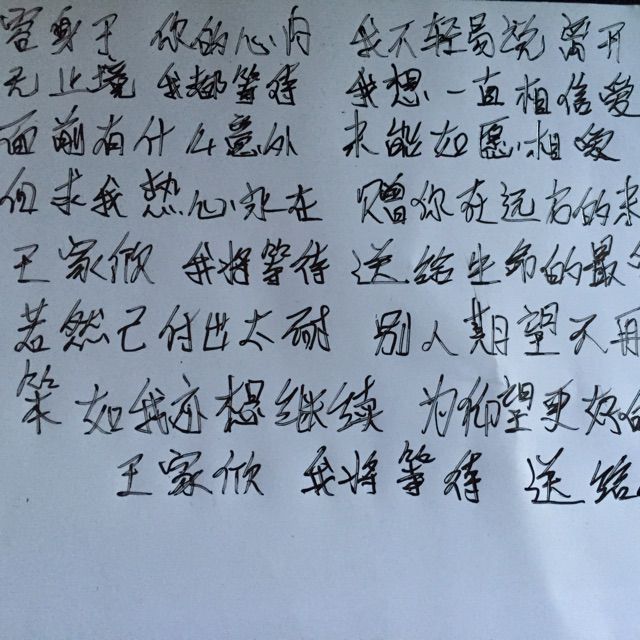 容身于 你的心内 我不轻易说 离开
无止境 我都等待 我想一直相信爱
面前有什么意外 未能如愿相爱
但求我热心永在 赠你在远右的未
王家欣 我将等待 送给生命的最
若然己付出太耐 别人期望不再
笨 如我亦想继续 为仰望更好的
王家欣 我将等待 送给